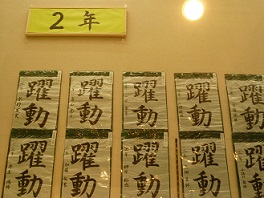 2年
躍動
躍動
躍動
躍動
躍動
躍動
躍動
躍動
躍動
躍動